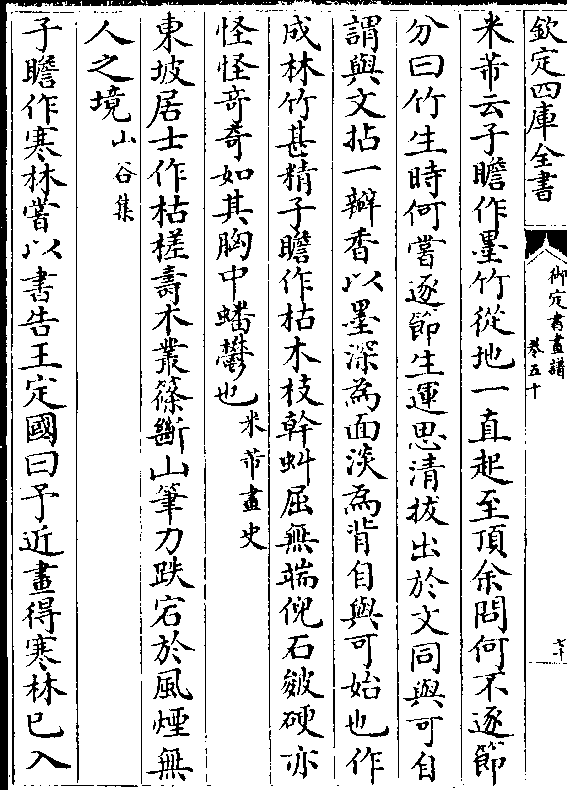 欽定四庫全書
御定書畫譜
卷五十
米芾云子瞻作墨竹從地一直起至頂余問何不逐節
分曰竹生時何嘗逐節生運思清拔出於文同與可自
謂與文拈一瓣香以墨深為面淡為背自與可始也作
成林竹甚精子瞻作枯木枝幹虯屈無端倪石皴硬亦
怪怪竒竒如其胸中蟠鬱也米芾畫史
東坡居士作枯槎壽木叢篠斷山筆力跌宕於風煙無
人之境山谷集
子瞻作寒林嘗以書告王定國曰予近畫得寒林已入